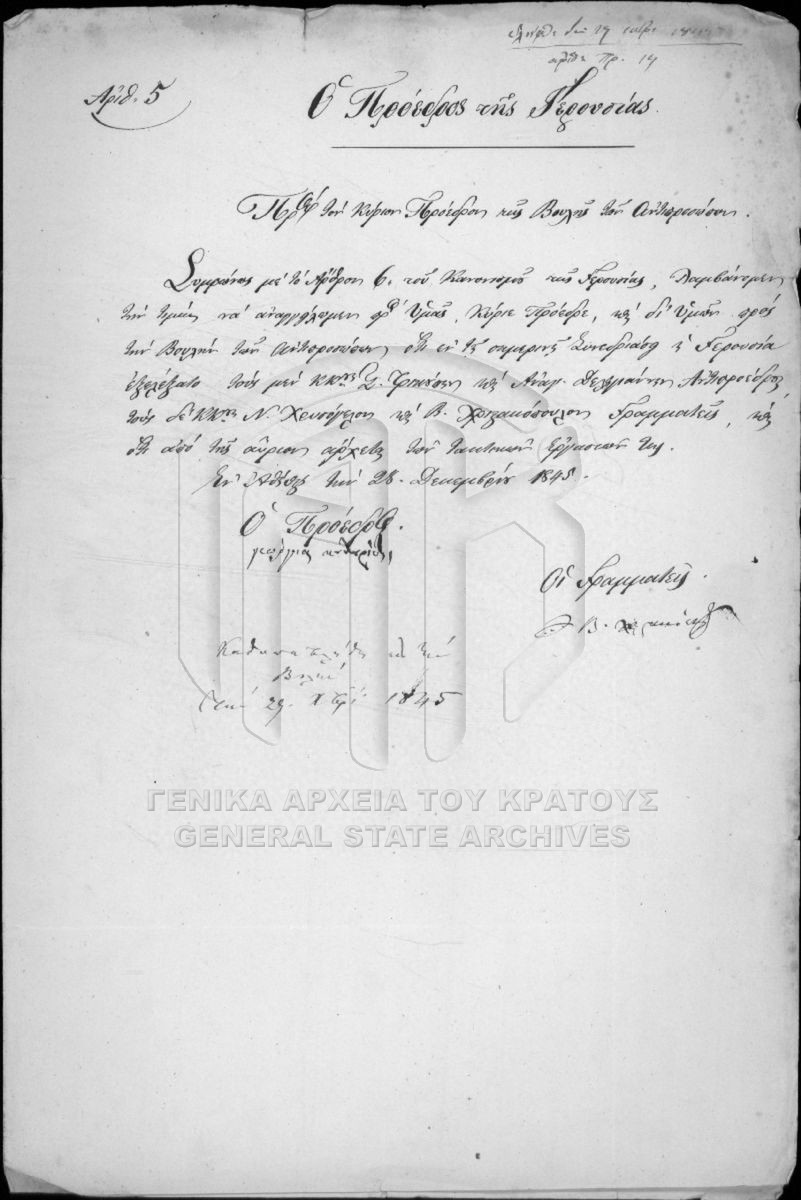 Αριθ. 5
Ὁ Πρόεδρος τῆς Γερουσίας.
Πρὸς τὸν Κύριον Πρόεδρον τῆς Βουλῆς τῶν Ἀντιπροσώπων.
Συμφώνως μὲ τὸ Ἄρθρον 6. τοῦ Κανονισμοῦ τῆς Γερουσίας, λαμβάνομεν
τὴν τιμὴν νὰ ἀναγγείλωμεν πρὸς Ὑμᾶς, Κύριε Πρόεδρε, καὶ δι' Ὑμῶν πρὸς
τὴν Βουλὴν τῶν Ἀντιπροσώπων ὅτι ἐν τῇ σημερινῇ Συνεδριάσει ἡ Γερουσία
ἐξελέξατο τοὺς μὲν ΚΚους καὶ Ἀναγ. Δεληγιάννην Ἀντιπροέδρους,
τοὺς δὲ ΚΚους Ν. Χρυσόγελον καὶ Β. Χριστακόπουλον Γραμματεῖς, καὶ
ὅτι ἀπὸ τῆς αὔριον ἄρχεται τῶν τακτικῶν ἐργασιῶν της.
Ἐν Ἀθήναις τὴν 28. Δεκεμβρίου 1845.
Ὁ Πρόεδρος.
Οἱ Γραμματεῖς.
Β.
Βουλὴν
τὴν 29. Χβρίου 1845
ΓΕΝΙΚΑ ΑΡΧΕΙΑ ΤΟΥ ΚΡΑΤΟΥΣ
GENERAL STATE ARCHIVES